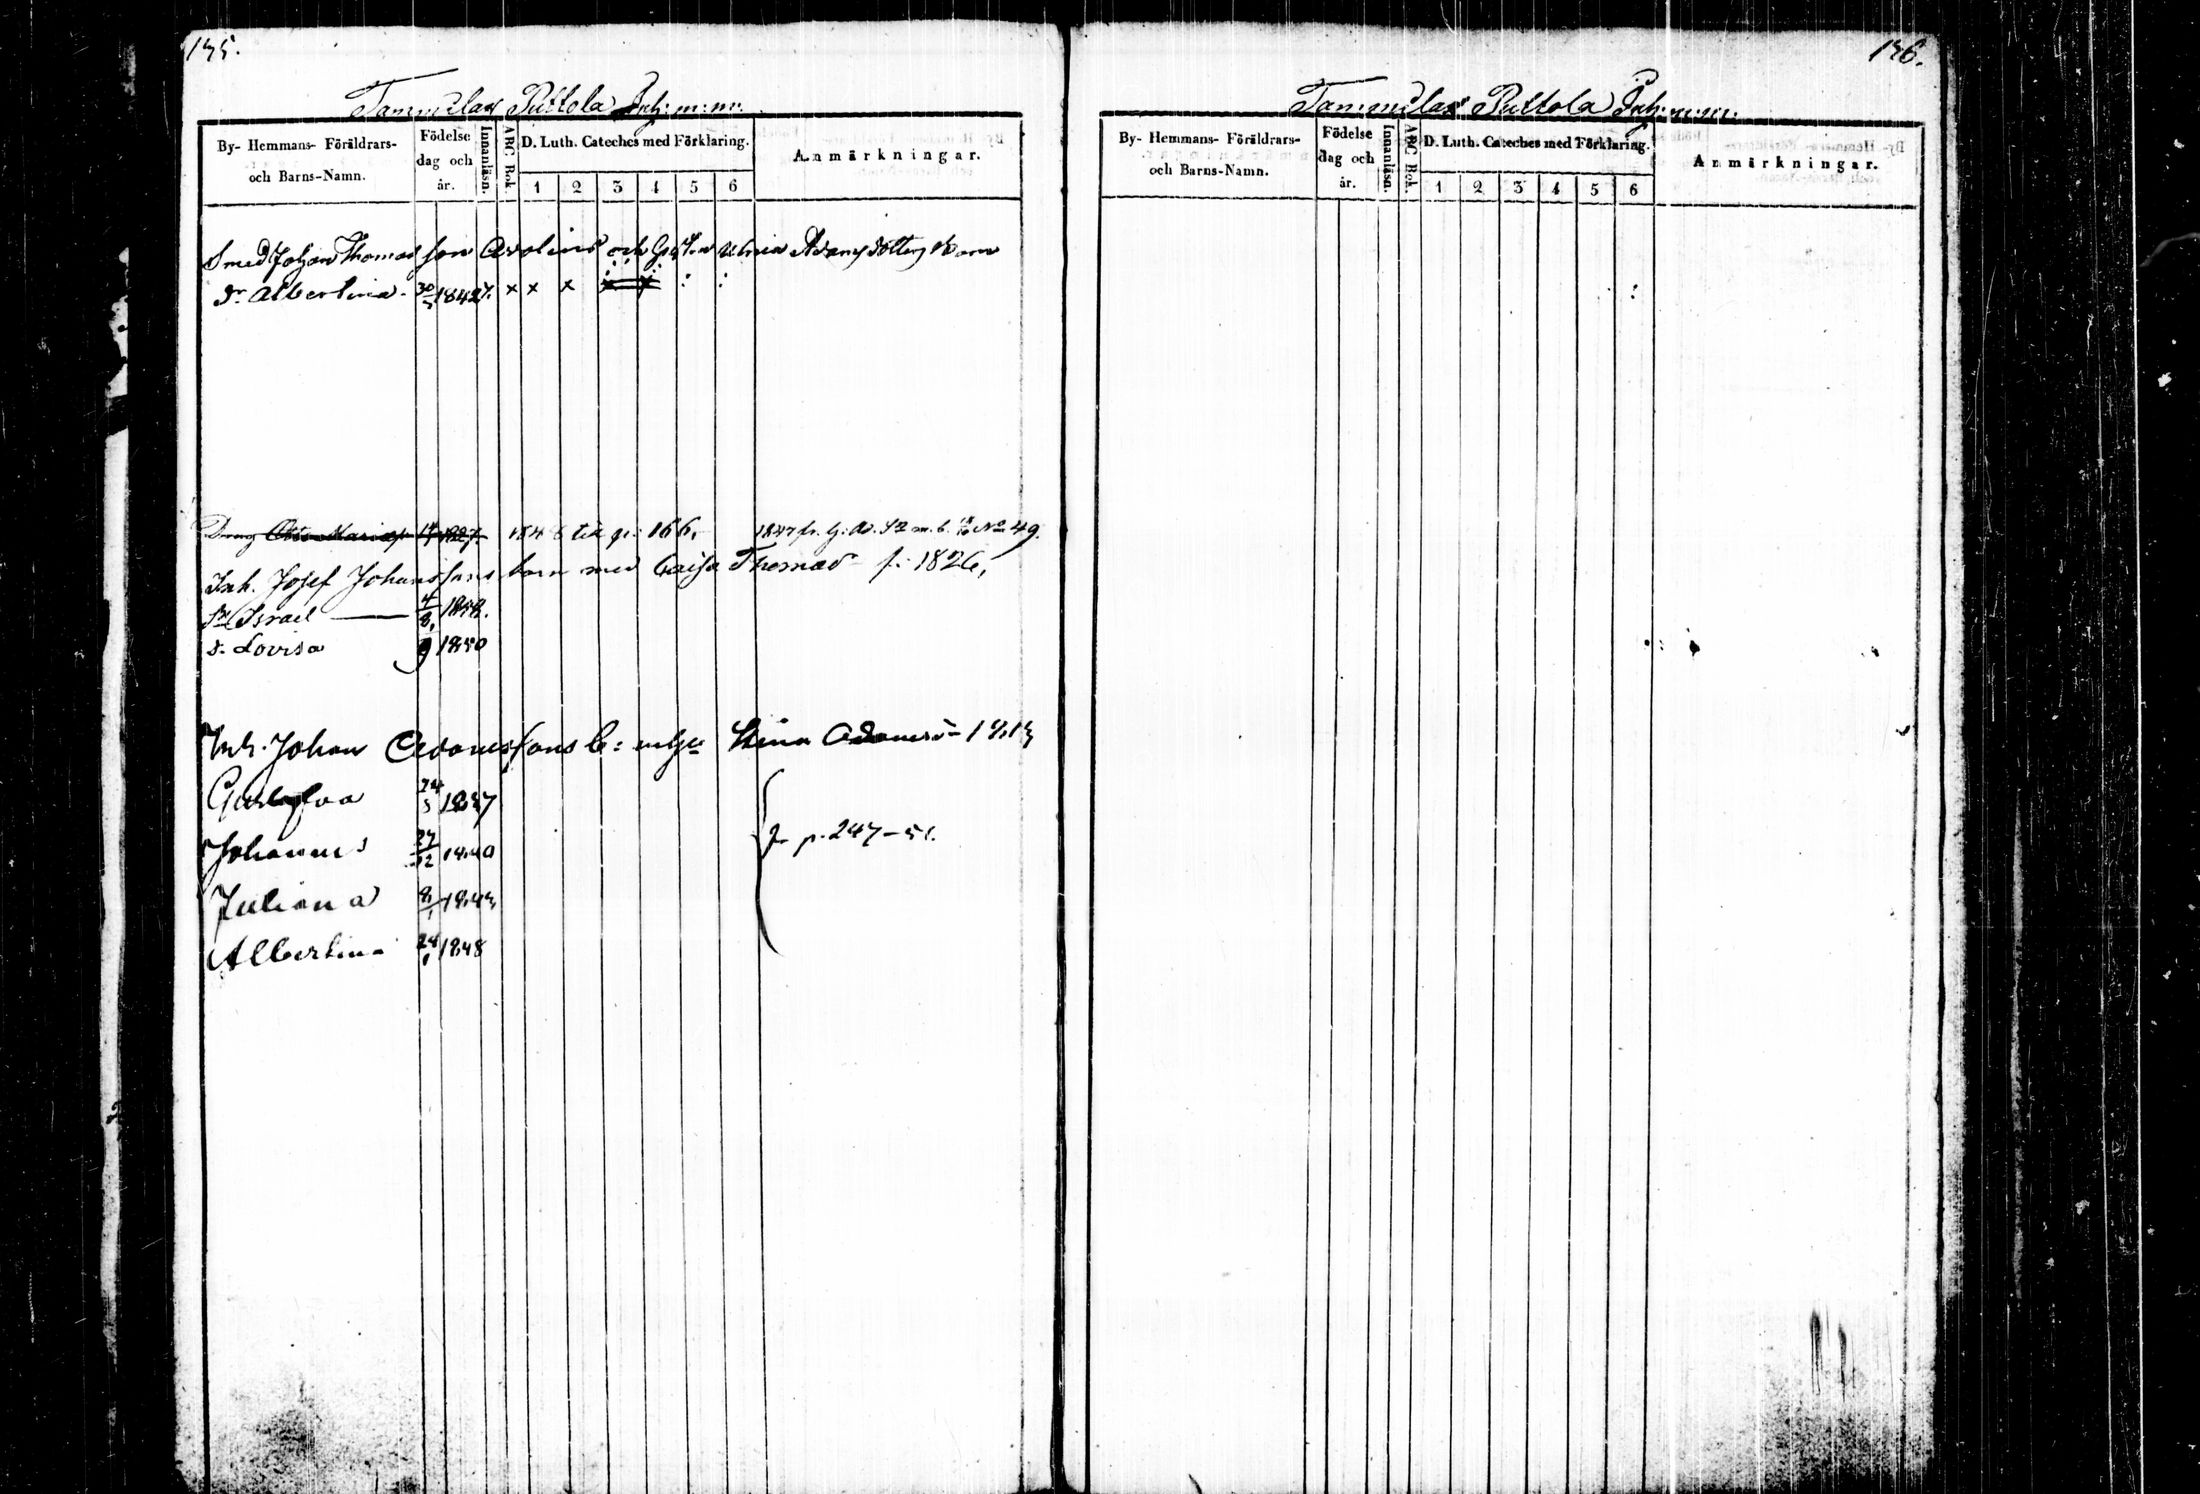 175.
Tammilax Puttola Inh: m: m:
By- Hemmans- Föräldrars-
och Barns-Namn.
Födelse
dag och
år.
Innanläsn.
ABC Bok.
D. Luth. Cateches med Förklaring.
1 2 3 4 5 6
Anmärkningar.
Smed Johan Thomas son och Adams dotters Barn
dr Albertina 30 1842 x x x
Dreng 1827. 1848 till p: 166. 1847 fr. No 49.
Inh. Josef Johanssons barn med Caisa Thomasd f: 1826,
Sn Israel 4/8
d. Lovisa 9 1850
Inh. Johan Adamssons b: m Stina Adamsd
Gustafva 24
Johannes 27/12 1840
Juliana 8/1
Albertina 28 1848
p. 247-51.
176.
Tammilax Puttola Inh: m: m.
By- Hemmans- Föräldrars-
och Barns-Namn.
Födelse
dag och
år.
Innanläsn.
ABC Bok.
D. Luth. Cateches med Förklaring.
1 2 3 4 5 6
Anmärkningar.